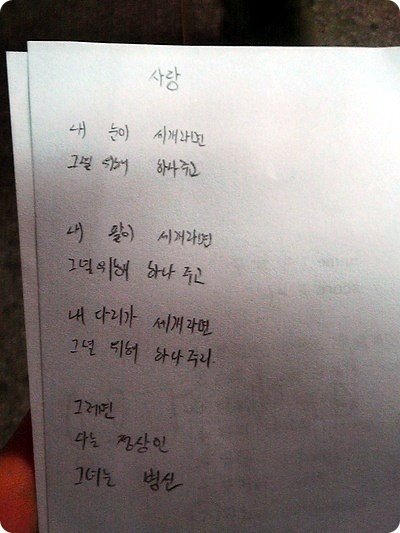 사랑
내 눈이 세개라면
그녈 위해 하나주고
내 팔이 세개라면
그녈위해 하나 주고
내 다리가 세개라면
그녈 위해 하나주리.
그러면
나는 정상인
그녀는 병신